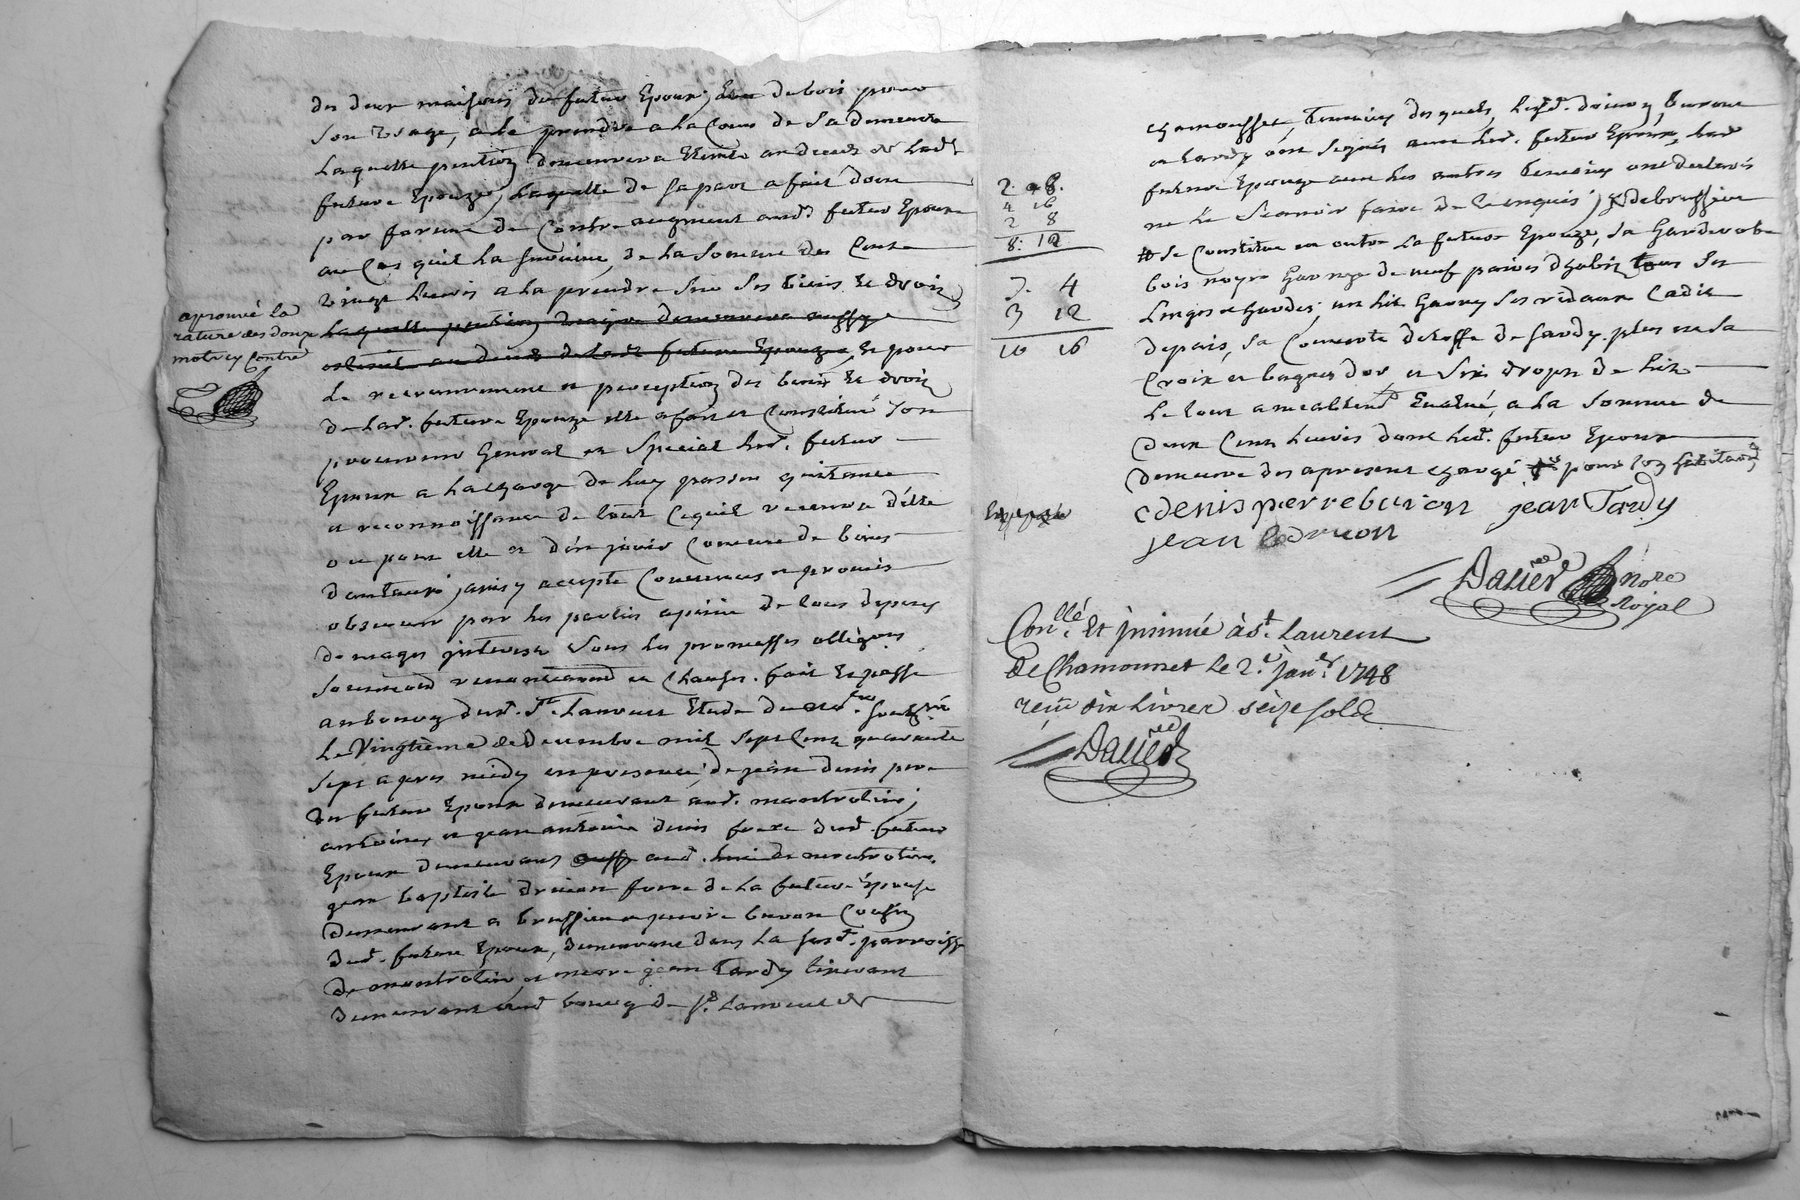 des deux maisons du futur Epoux, de bois pour
son Usage, a le prendre a la Cour de sa demeure
Laquelle pention demeurera Eteinte au deces de Lad.
future Epouze, Laquelle de sa part a fait don
par forme de Contre augment aud. futur Epoux
au Cas quil La survive, de La Somme de Cent
vingt Livres a La prendre sur ses biens Et droits
Laquelle pention viagere demeurera
au deces de Lad. future Epouze, Et pour
Le recouvrement et perception des biens Et droits
de Lad. future Epouze elle a fait et Constitué son
procureur General et Special Led. futur
Epoux a La charge de Luy passer quittance
et reconnoissance de tout Ce quil recevra d'elle
ou pour elle et d'en jouir Comme de biens
dautruy, ainsy accepté Convenus et promis
observer par Les parties a peine de tous depens
domages interests sous Les promesses obligaons
soumions renonciaons et Clauses. fait Et passé
au bourg dud. St. Laurent Etude du no.re soubz.né
Le Vingtieme de Decembre mil sept Cent quarante
sept apres midy en presence, de jean denis pere
du futur Epoux demeurant aud. montrotier,
antoine et jean antoine denis frere dud. futur
Epoux demeurans aud. Lieu de montrotier.
jean baptiste drivon frere de La future Epouse
demeurant a brussieu et pierre buron Cousin
dud. futur Epoux, demeurant dans La susd. parroisse
de montrotier et jean Tardy
demeurant aud bourg de St. Laurent de
aprouvé La
rature des douze
mots cy Contre
2. 8.
4 16
2 8
8: 12
7. 4
3 12
10 16
chamousset, temoins desquels, Lesd. drivon, buron
et tardy ont signés avec Led. futur Epoux, Lad
future Epouze avec Les autres temoins ont declarés
ne Le Scavoir faire de ce enquis,
# se Constitue en outre La future Epouze, sa Garderobe
bois noyer Garnye de neuf paires d'habits tous ses
Linges et hardes, un Lit Garny ses rideaux Cadis
depais, sa Couverte
Croix et bagues d'or et Six draps de Lits
Le tout amiablement Evalué, a La Somme de
deux Cent Livres dont Led. futur Epoux
demeure des apresent chargé pour Son habitaon
denis pierre buron jean Tardy
jean drivon
Davier no.re
Royal
Con.llé Et jnsinué à St. Laurent
de Chamousset Le 2.e jan.er 1748
reçu dix Livres seize sols
Davier